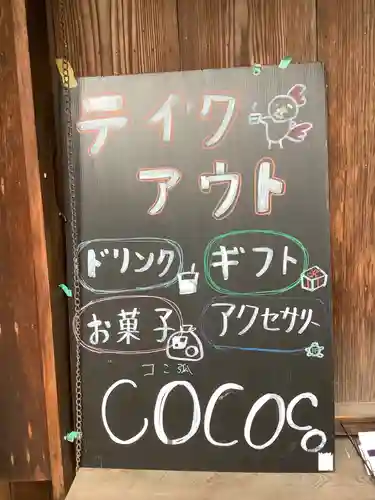 テイク
アウト
ドリンク
ギフト
お菓子
アクセサリー
COCO